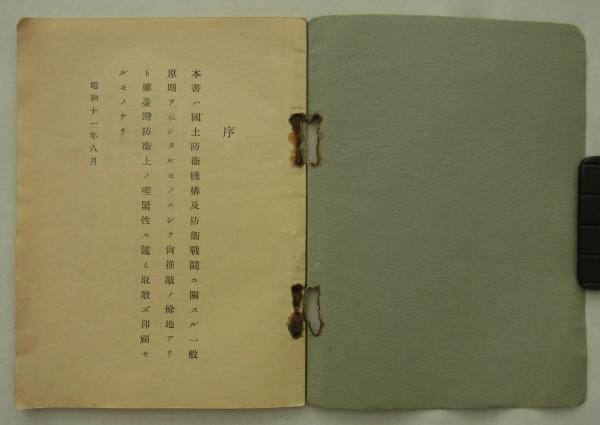 序
本書ハ國土防衛機構及防衛戰鬪ニ關スル一般
原則ヲ示シタルモノニシテ尚推敲ノ餘地アリ
ト雖臺灣防衛上ノ喫緊性ニ鑑ミ取敢ズ印刷セ
ルモノナリ
昭和十一年八月